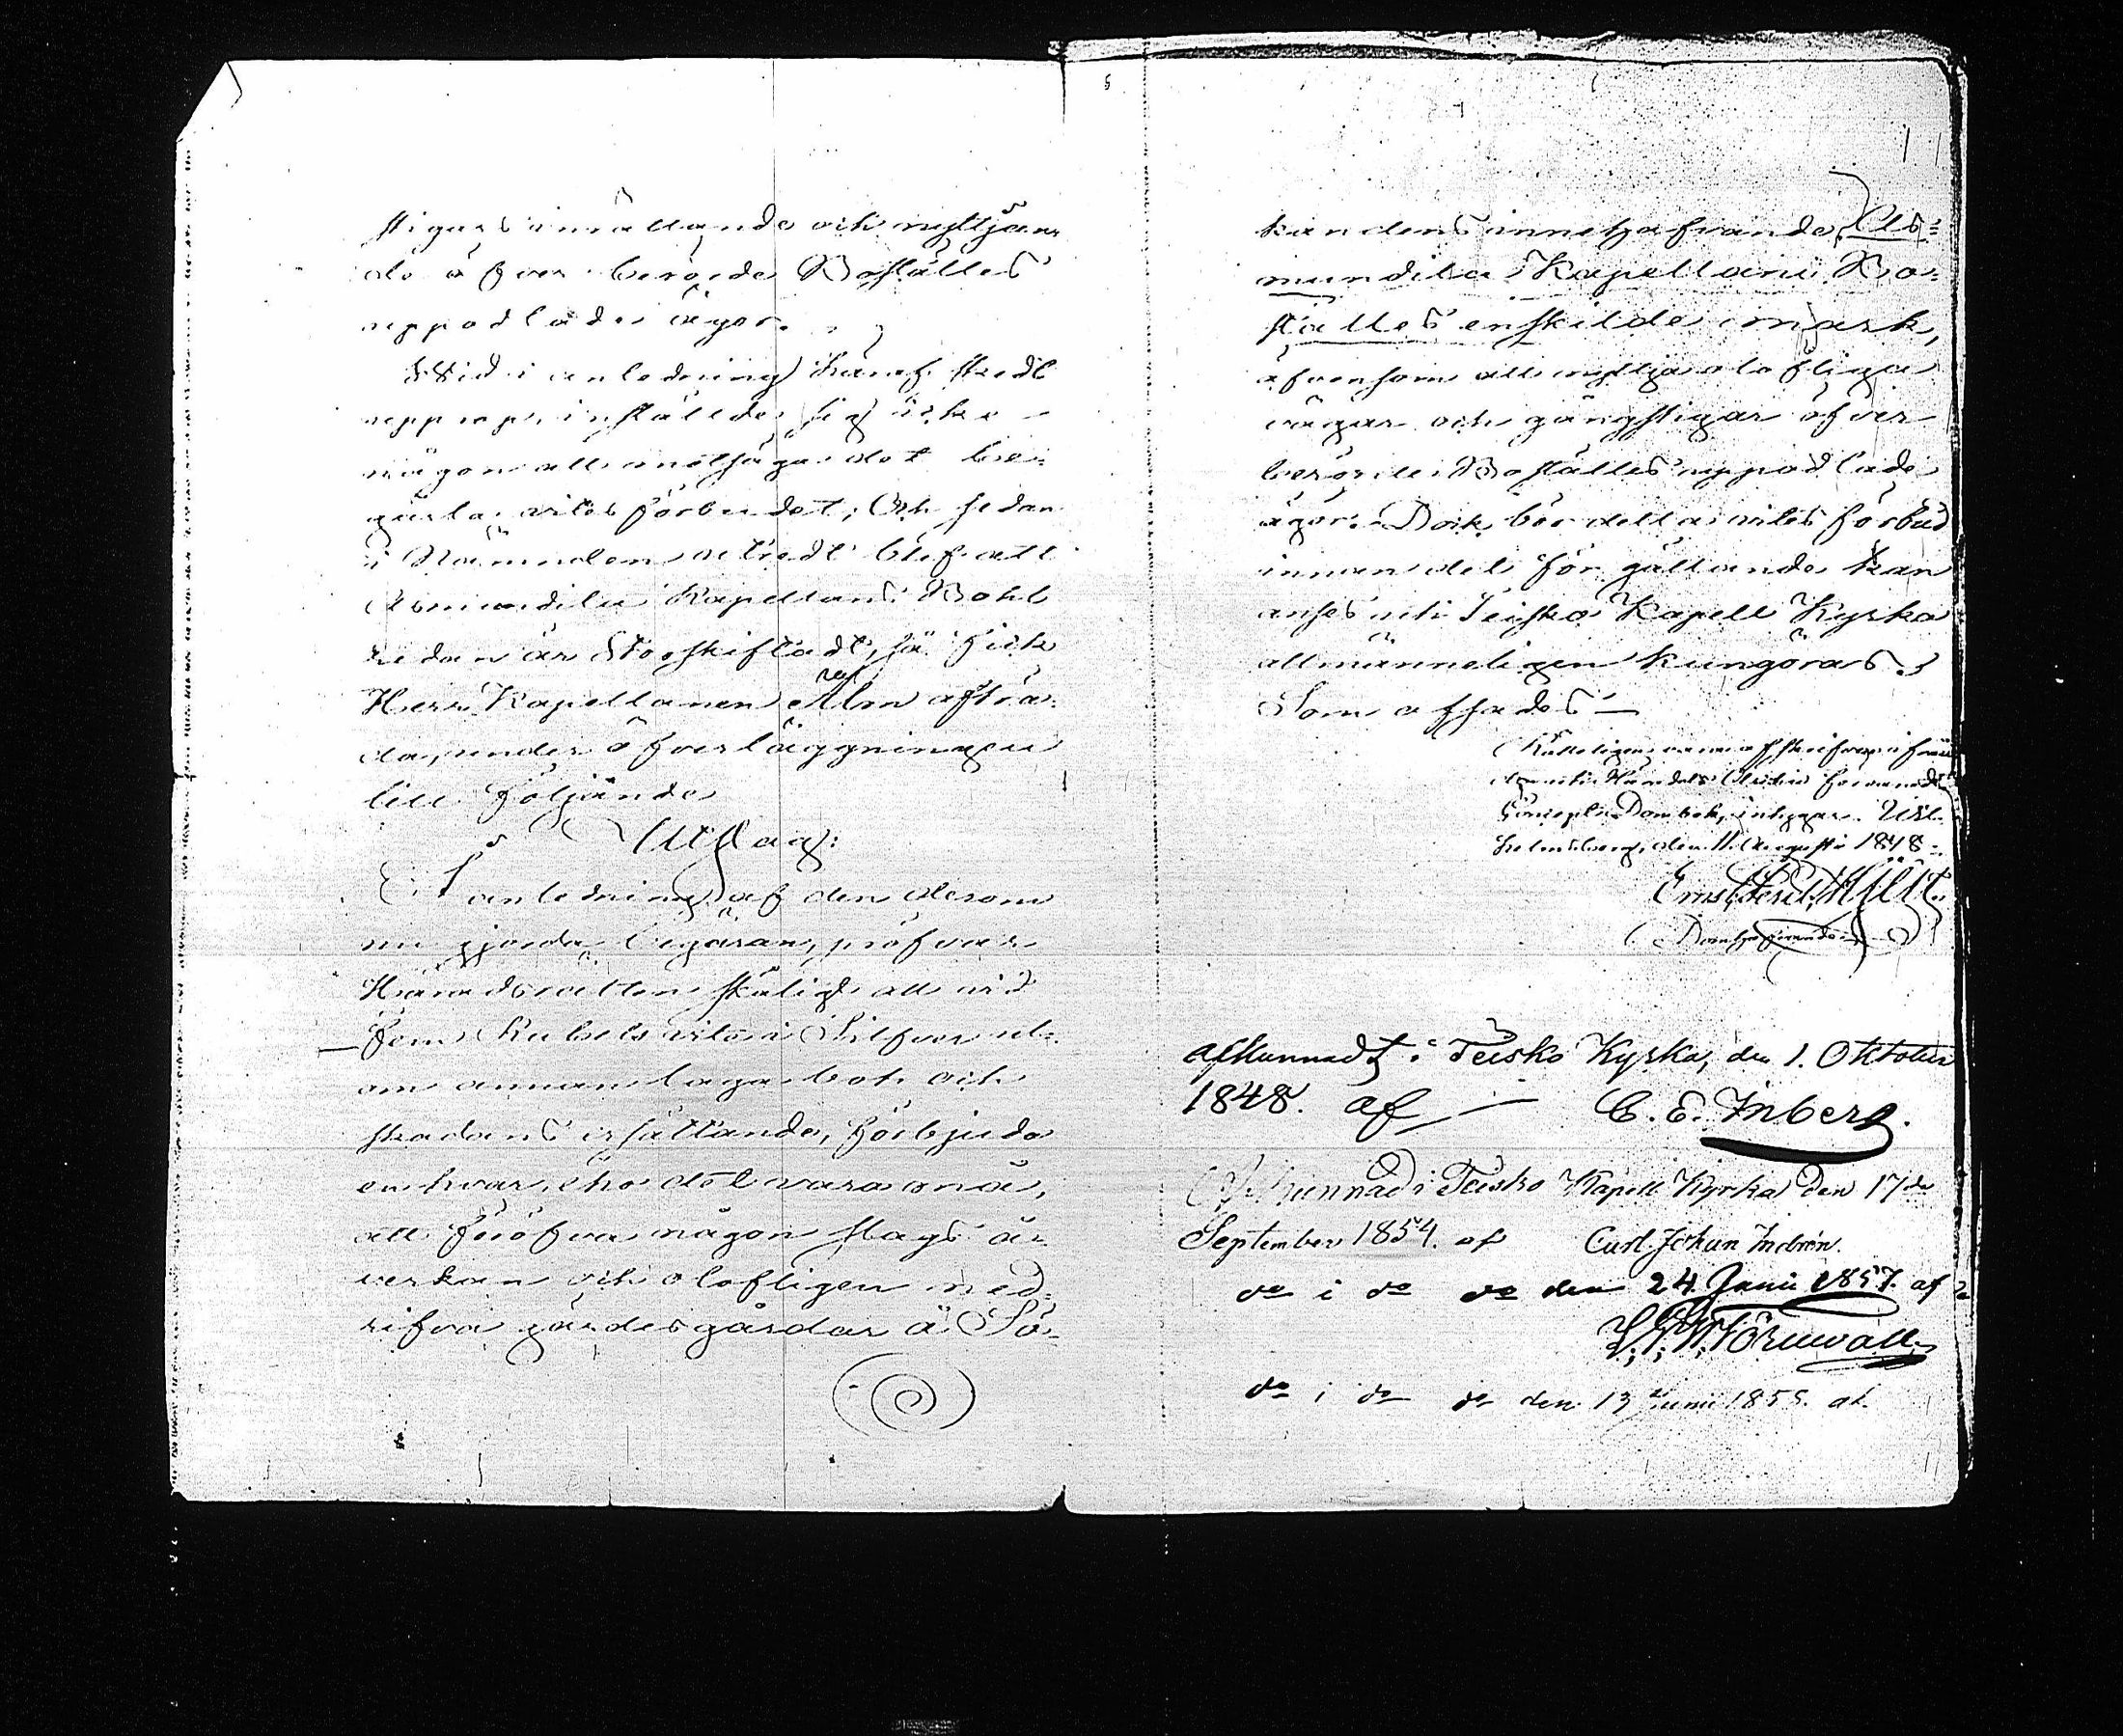 stigars inrättande och nyttjan-
de öfver berörde Boställes
uppodlade ägor.
Wid i anledning häraf skedt
upprop, inställde sig icke
någon att motsäga det be-
gärta vites förbudet; Och sedan
i Nämnden utredt blef att
Asmundila Kapellans Bohl
redan är Storskiftadt, så fick
Herr Kapellanen Alm afträ-
da, under öfverläggningen
till följande
Utslag:
I anledning af den derom
nu gjorda begäran, pröfvar
Häradsrätten skäligt att vid
Fem Rubels vite i Silfver ut-
om annan laga bot och
skadans ersättande, förbjuda
en hvar, eho det vara må,
att föröfva någon slags å-
verkan och olofligen ned-
rifva gärdesgårdar å Sö-
kandens innehafvande As-
mundila Kapellans Bo-
ställes enskilde mark,
äfvensom att nyttja olofliga
vägar och gångstigar öfver
berörde Boställes uppodlade
ägor. Dock bör detta vites förbud
innan det för gällande kan
anses uti Teisko Kapell Kyrka
allmänneligen kungöras.
Som afsades
den 11 Augusti 1848
Ernst Ferd.
Domhafvande
afkunnadt i Teisko Kyrka, den 1. Oktober
1848. af C. E. Inberg.
Afkunnad i Teisko Kapell Kyrka den 17de
September 1854. af Carl Johan Indrén.
do i do do den 24. Junii 1857. af
Törnwall
do i do do den 13 Juni 1858. af